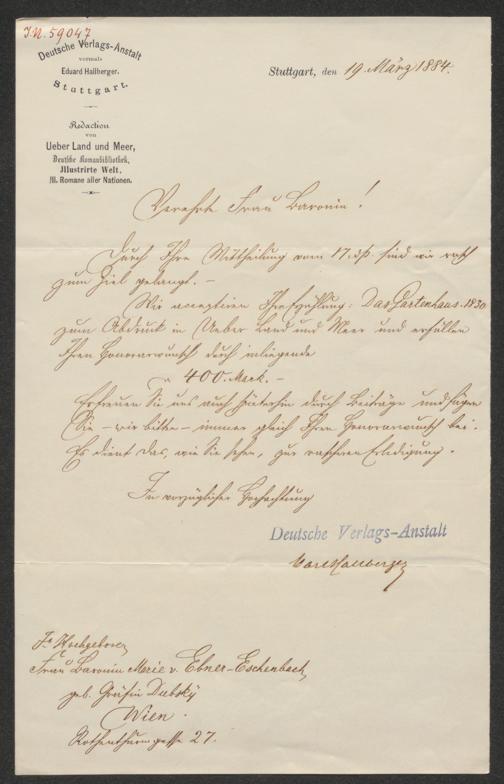 I.N. 59047
Deutsche Verlags-Anstalt
vormals
Eduard Hallberger.
Stuttgart.
Redaction
von
Ueber Land und Meer,
Deutsche Romanbibliothek,
Illustrirte Welt,
Ill. Romane aller Nationen.
Stuttgart, den 19 März 1884.
Verehrte Frau Baronin!
Durch Ihre Mittheilung vom 17. ds. sind wir rasch
zum Ziel gelangt. –
Wir acceptiren Ihre Erzählung: Das Gartenhaus. 1830
zum Abdruck in Ueber Land und Meer und erfüllen
Ihren Honorarwunsch durch inliegende
400. Mark. –
Erfreuen Sie uns auch fürderhin durch Beiträge und fügen
Sie – wir bitten – immer gleich Ihren Honorarwunsch bei.
Es dient das, wie Sie sehen, zur rascheren Erledigung.
In vorzüglicher Hochachtung
Deutsche Verlags-Anstalt
Carl Hallberger
Hochgeboren
Frau Baronin Marie v. Ebner-Eschenbach,
geb. Gräfin Dubský
Wien.
Rothenthurmgasse 27.